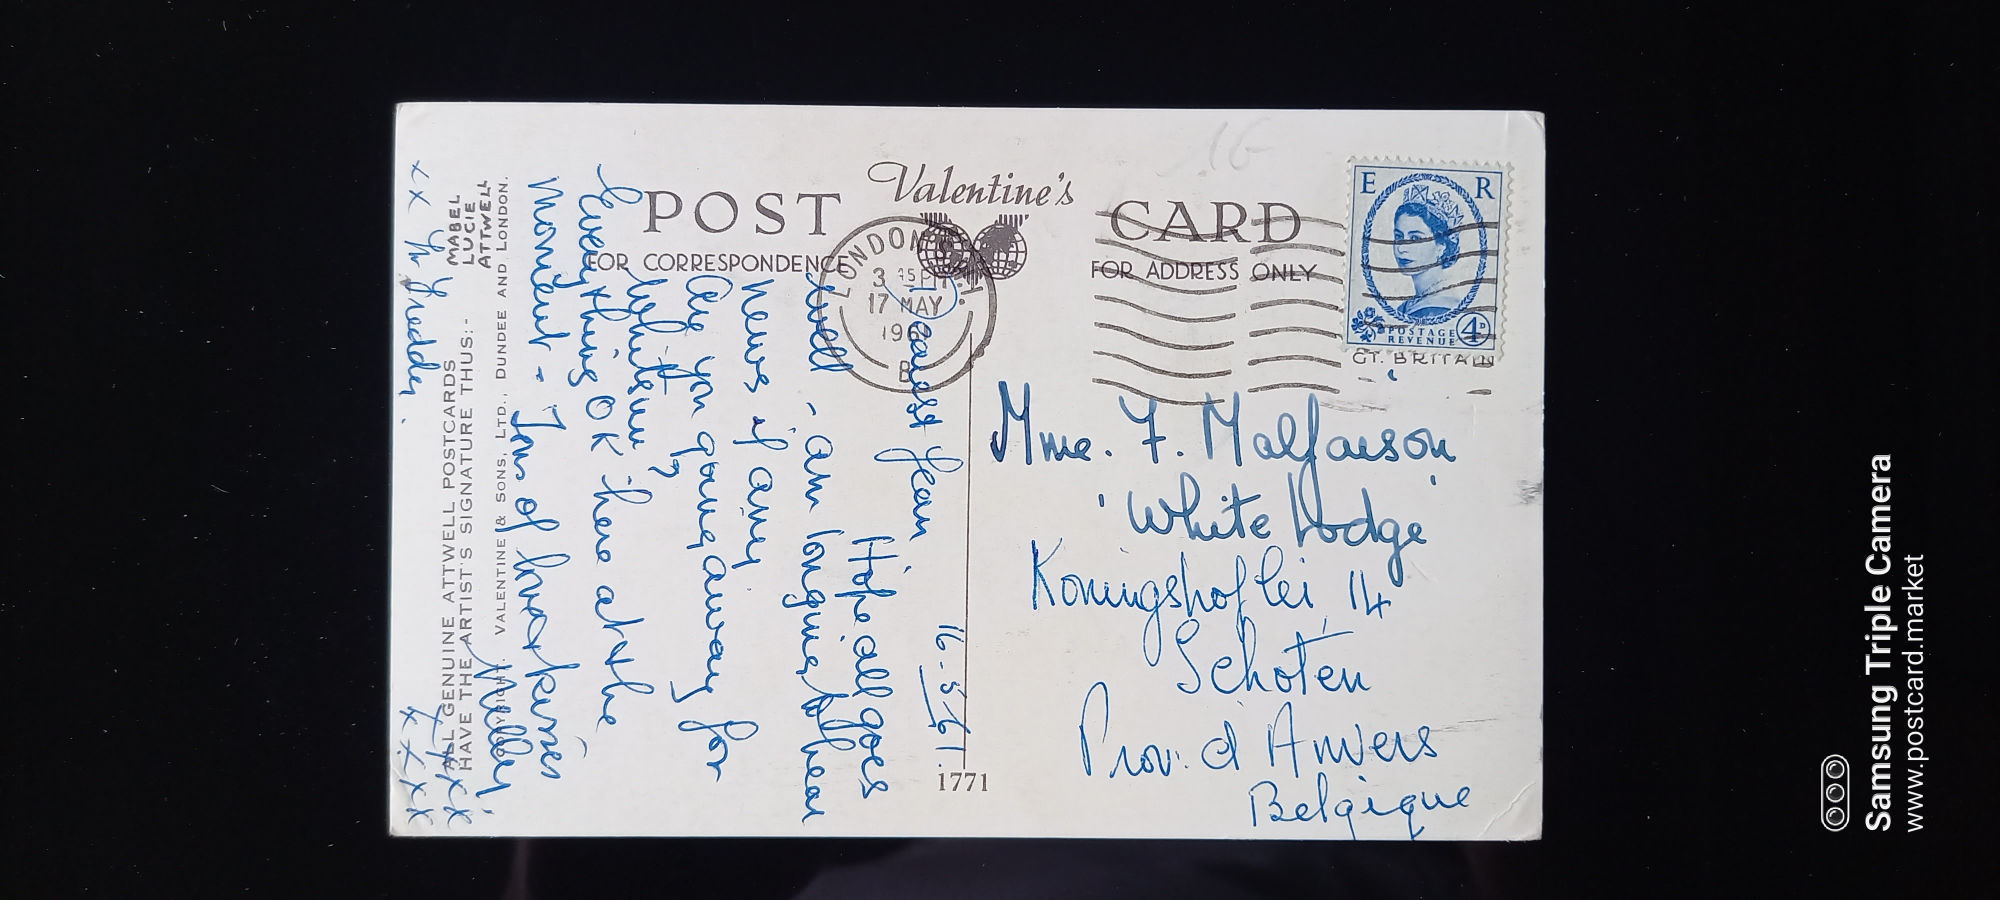 POST Valentine's CARD
FOR CORRESPONDENCE
FOR ADDRESS ONLY
LONDON S.W.1.
3 15 PM
17 MAY
196
B
E R
POSTAGE
REVENUE
4D
GT. BRITAIN
16-5-61.
Dearest Jean
Hope all goes
well - am longing to hear
news if any
Are you going away for
Whitsun??
Everything OK here at the
moment - Tons of love & kisses
Nelley
xxxx
xxxx
xx Fr Freddy.
Mme. F. Malfaison
'White Lodge'
Koningshoflei 14
Schoten
Prov: d'Anvers
Belgique
1771
ALL GENUINE ATTWELL POSTCARDS
HAVE THE ARTIST'S SIGNATURE THUS:-
MABEL
LUCIE
ATTWELL
COPYRIGHT. VALENTINE & SONS, LTD., DUNDEE AND LONDON.
Samsung Triple Camera
www.postcard.market